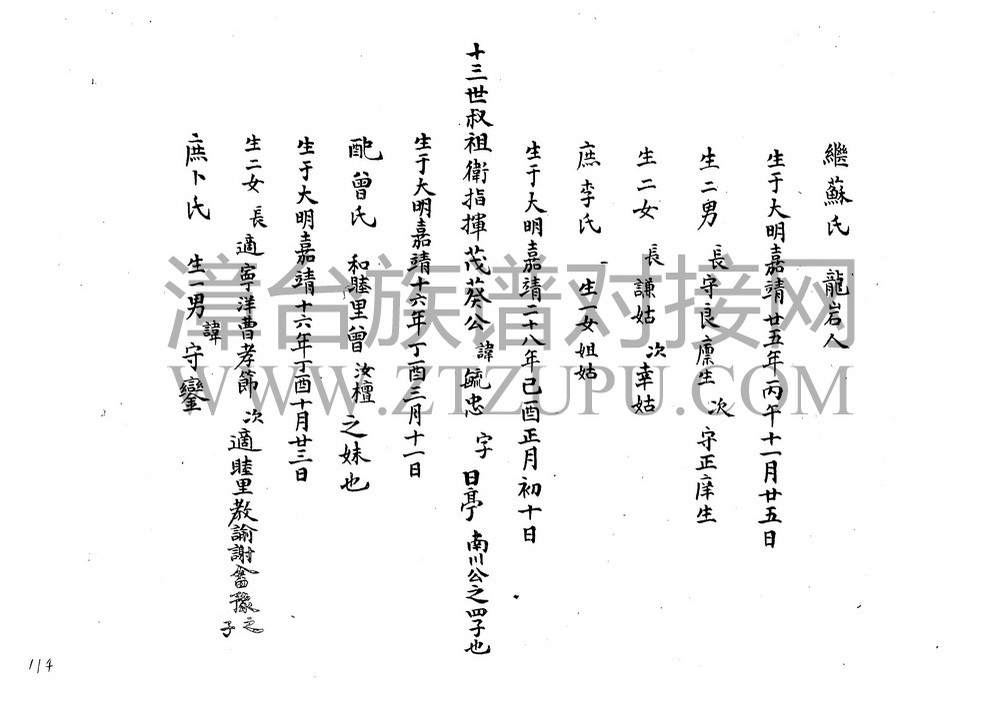 繼蘇氏 龍岩人
生于大明嘉靖廿五年丙午十一月廿五日
生二男 長守良廩生 次守正庠生
生二女 長謙姑 次幸姑
庶李氏 生一女姐姑
生于大明嘉靖二十八年己酉正月初十日
十三世叔祖衛指揮茂葵公 諱毓忠 字日亭 南川公之四子也
生于大明嘉靖十六年丁酉三月十一日
配曾氏 和睦里曾汝檀之妹也
生于大明嘉靖十六年丁酉十月廿三日
生二女 長適寧洋曹孝節 次適睦里教諭謝畬豫之子
庶卜氏 生一男 諱守鑾
114
漳台族谱对接网
WWW.ZTZUPU.COM